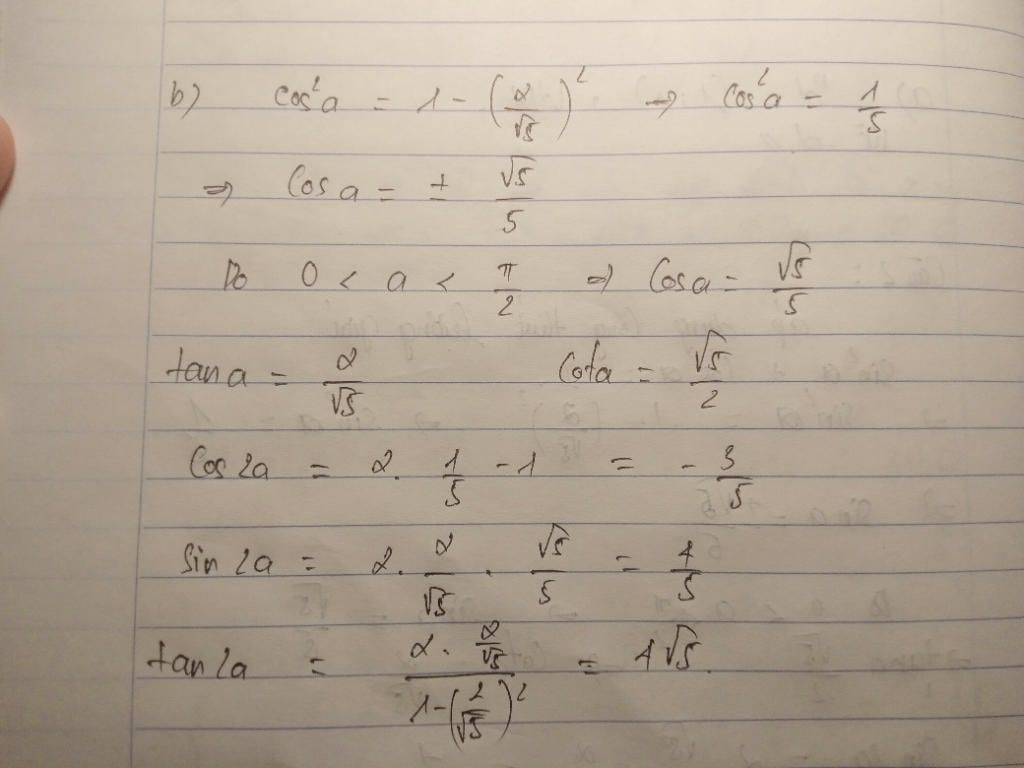 b) cos²a = 1 - (2/√5)² → cos²a = 1/5
⇒ cos a = ± √5/5
Do 0 < a < π/2 ⇒ cos a = √5/5
tan a = 2/√5 cot a = √5/2
cos 2a = 2. 1/5 - 1 = - 3/5
sin 2a = 2. 2/√5 . √5/5 = 4/5
tan 2a = (2. 2/√5)/(1-(2/√5)²) = 4√5.